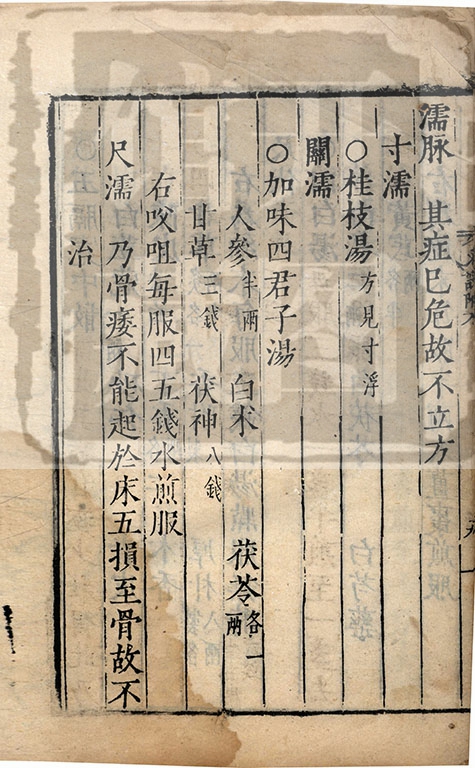 濡脉　其症已危故不立方
寸濡
○桂枝湯方見寸浮
關濡
○加味四君子湯
人參半兩　白术　茯苓各一兩
甘草三錢　茯神八錢
右㕮咀每服四五錢水煎服
尺濡　乃骨痿不能起於床五損至骨故不
治